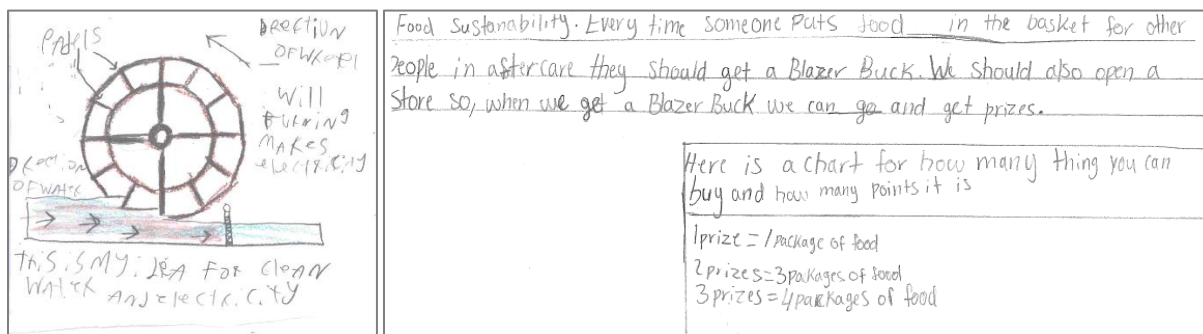 PADELS
DRECTION
OF WHEEL
Will
turing
MAKES
electricity
DRECTION
OF WATER
this is MY iDEA FOR CLEAN
WATER AND electricity
Food Sustanability. Every time someone puts food in the basket for other
people in aftercare they should get a Blazer Buck. We should also open a
store so, when we get a Blazer Buck we can go and get prizes.
Here is a chart for how many thing you can
buy and how many points it is
1 prize = 1 package of food
2 prizes = 3 pakages of food
3 prizes = 4 packages of food